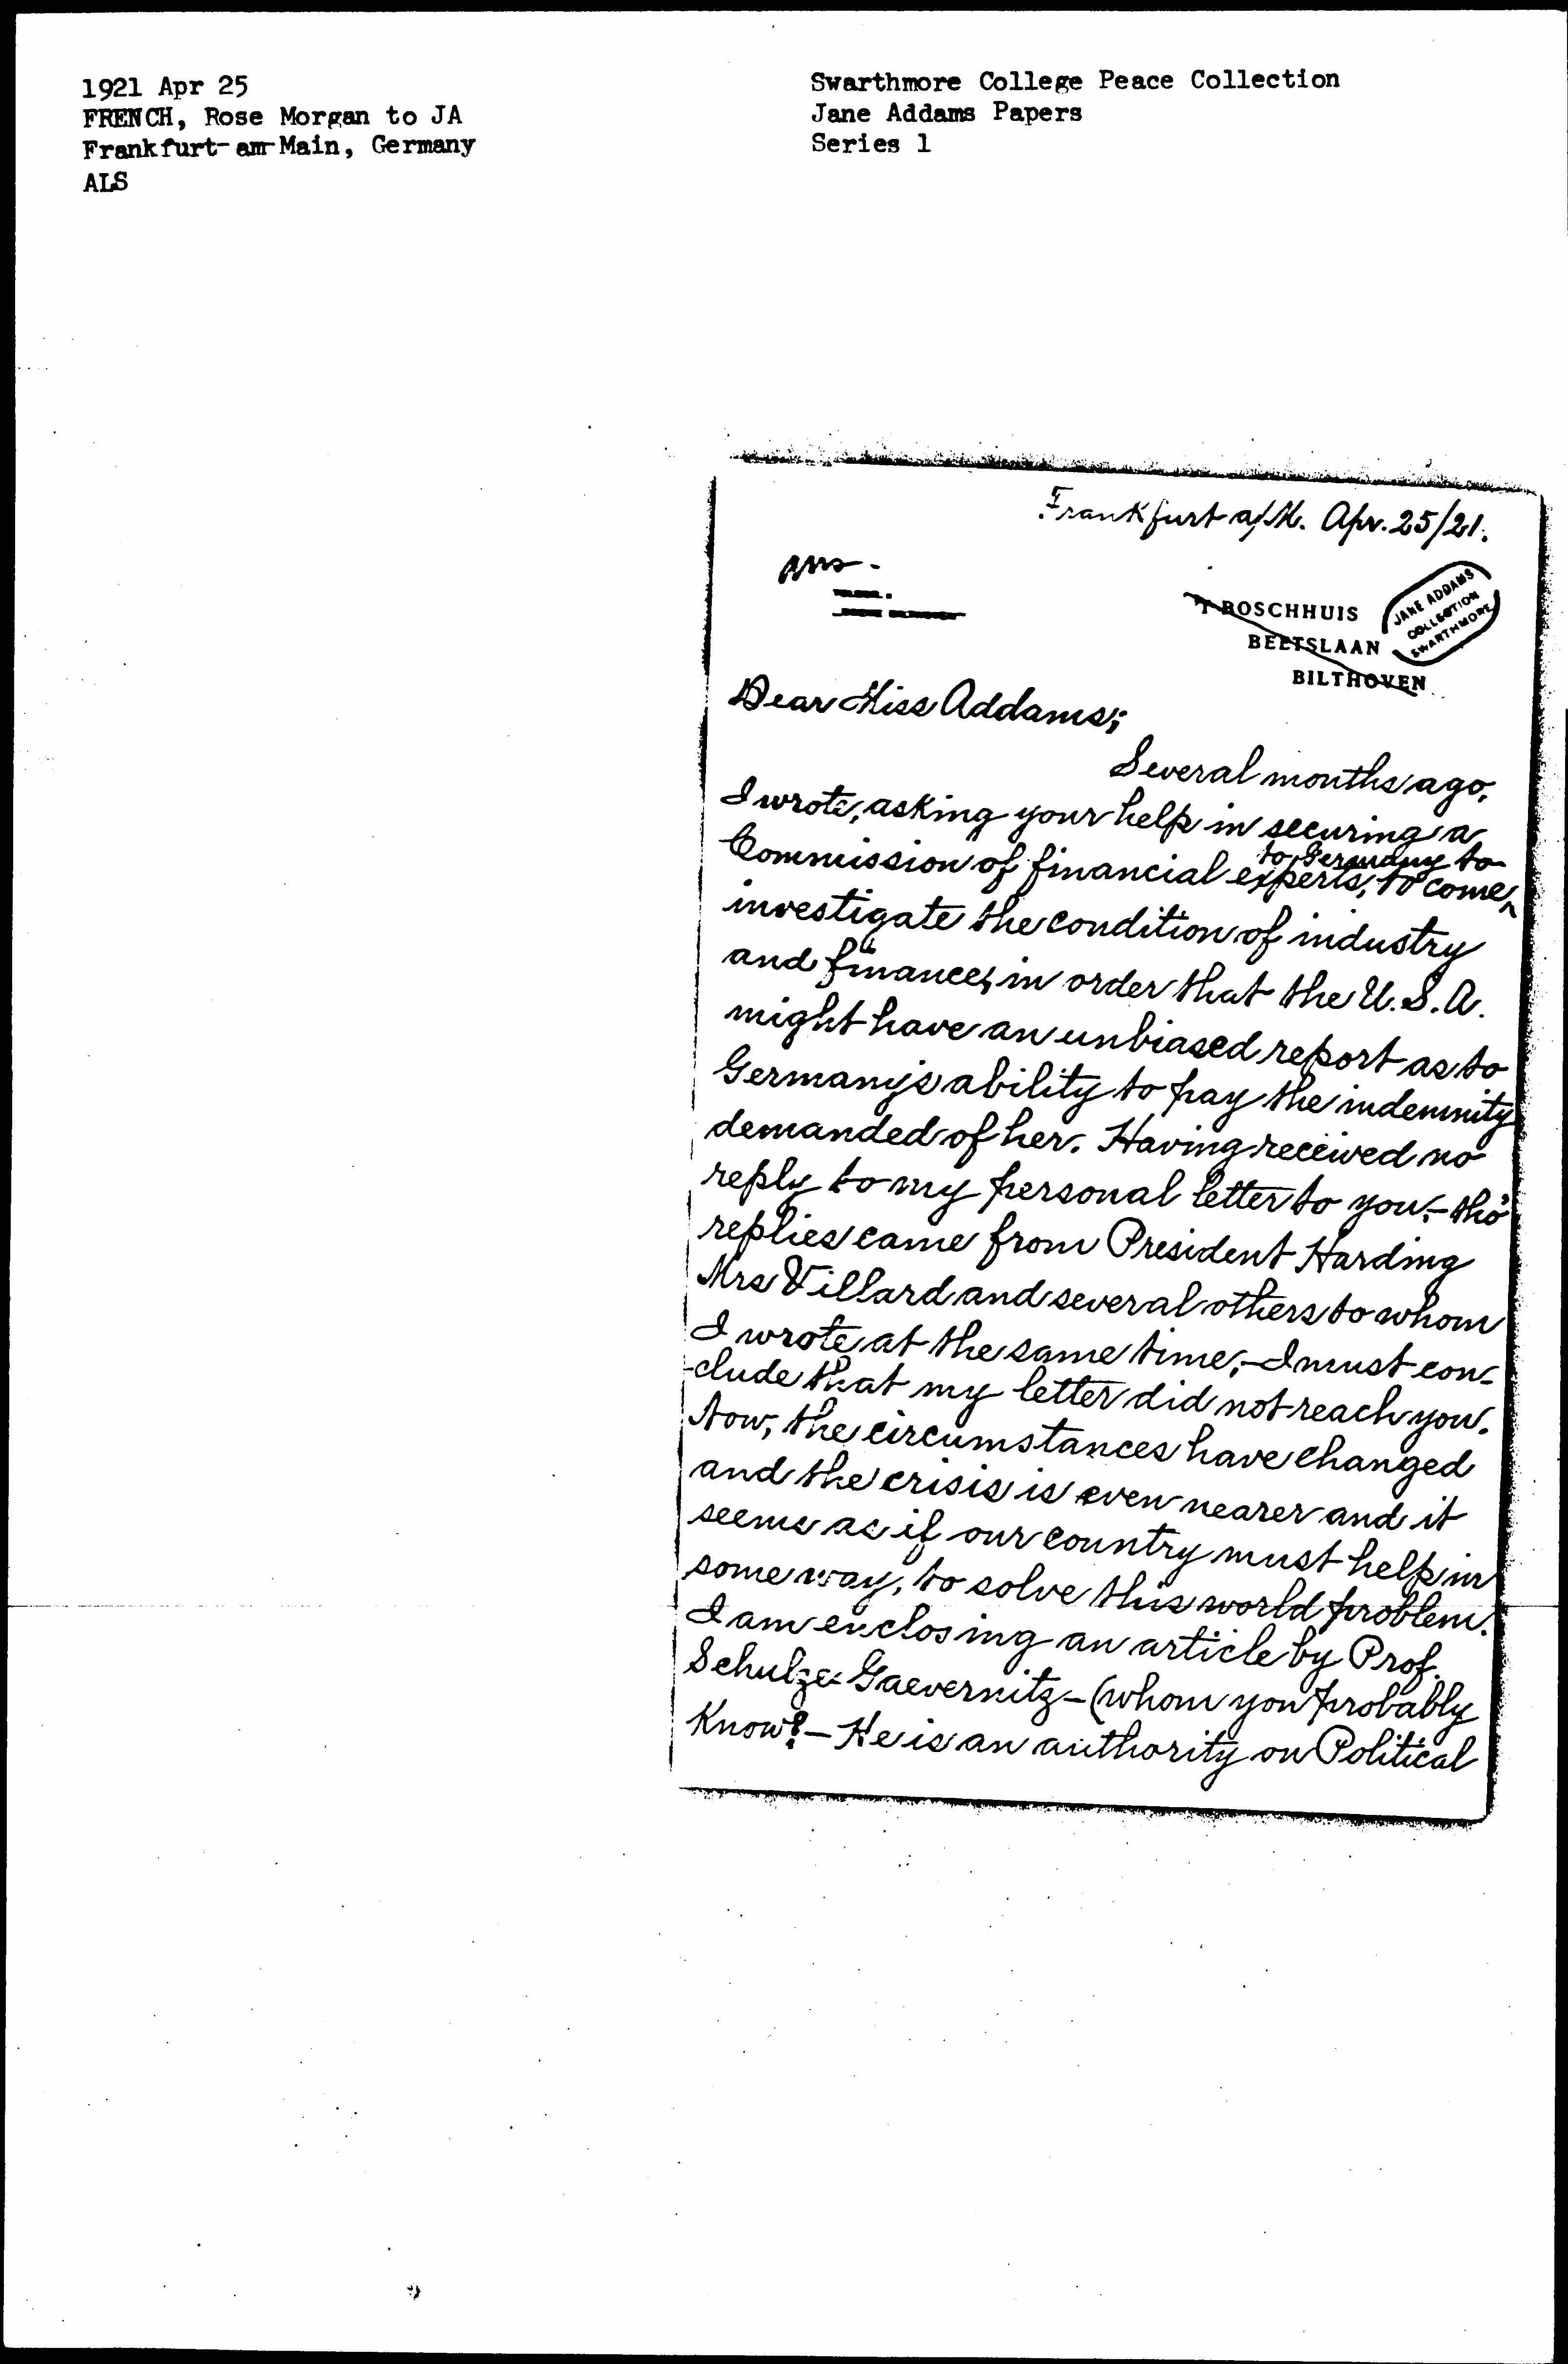 1921 Apr 25
FRENCH, Rose Morgan to JA
Frankfurt-am-Main, Germany
ALS
Swarthmore College Peace Collection
Jane Addams Papers
Series 1
Frankfurt a/M. Apr. 25/21.
ans-
'T BOSCHHUIS
BEETSLAAN
BILTHOVEN
JANE ADDAMS
COLLECTION
SWARTHMORE
Dear Miss Addams;
Several months ago,
I wrote, asking your help in securing a
to Germany to
Commission of financial experts, to come
investigate the condition of industry
and finance, in order that the U.S.A.
might have an unbiased report as to
Germany's ability to pay the indemnity
demanded of her. Having received no
reply to my personal letter to you,- tho'
replies came from President Harding
Mrs Villard and several others to whom
I wrote at the same time,- I must con-
-clude that my letter did not reach you.
Now, the circumstances have changed
and the crisis is even nearer and it
seems as if our country must help in
some way, to solve this world problem.
I am enclosing an article by Prof.
Schulze-Gaevernitz-(whom you probably
know?- He is an authority on Political